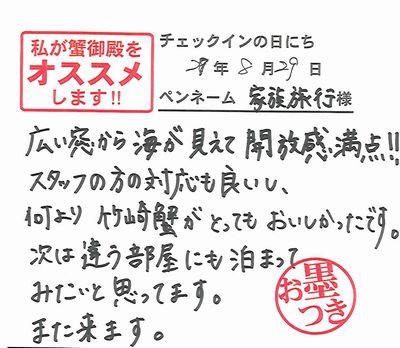 私が蟹御殿を
オススメ
します!!
チェックインの日にち
29年8月29日
ペンネーム 家族旅行様
広い窓から海が見えて開放感、満点!!
スタッフの方の対応も良いし、
何より竹崎蟹がとってもおいしかったです。
次は違う部屋にも泊まって
みたいと思ってます。
また来ます。
お墨つき